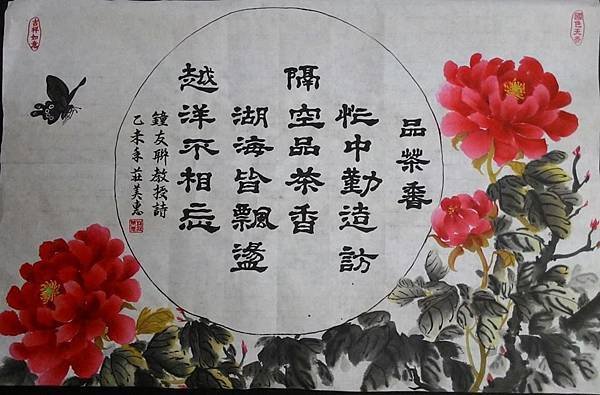 國色天香
品茶香
忙中勤造訪
隔空品茶香
湖海皆飄盪
越洋不相忘
鐘友聯教授詩
乙未年莊美惠
吉祥如意